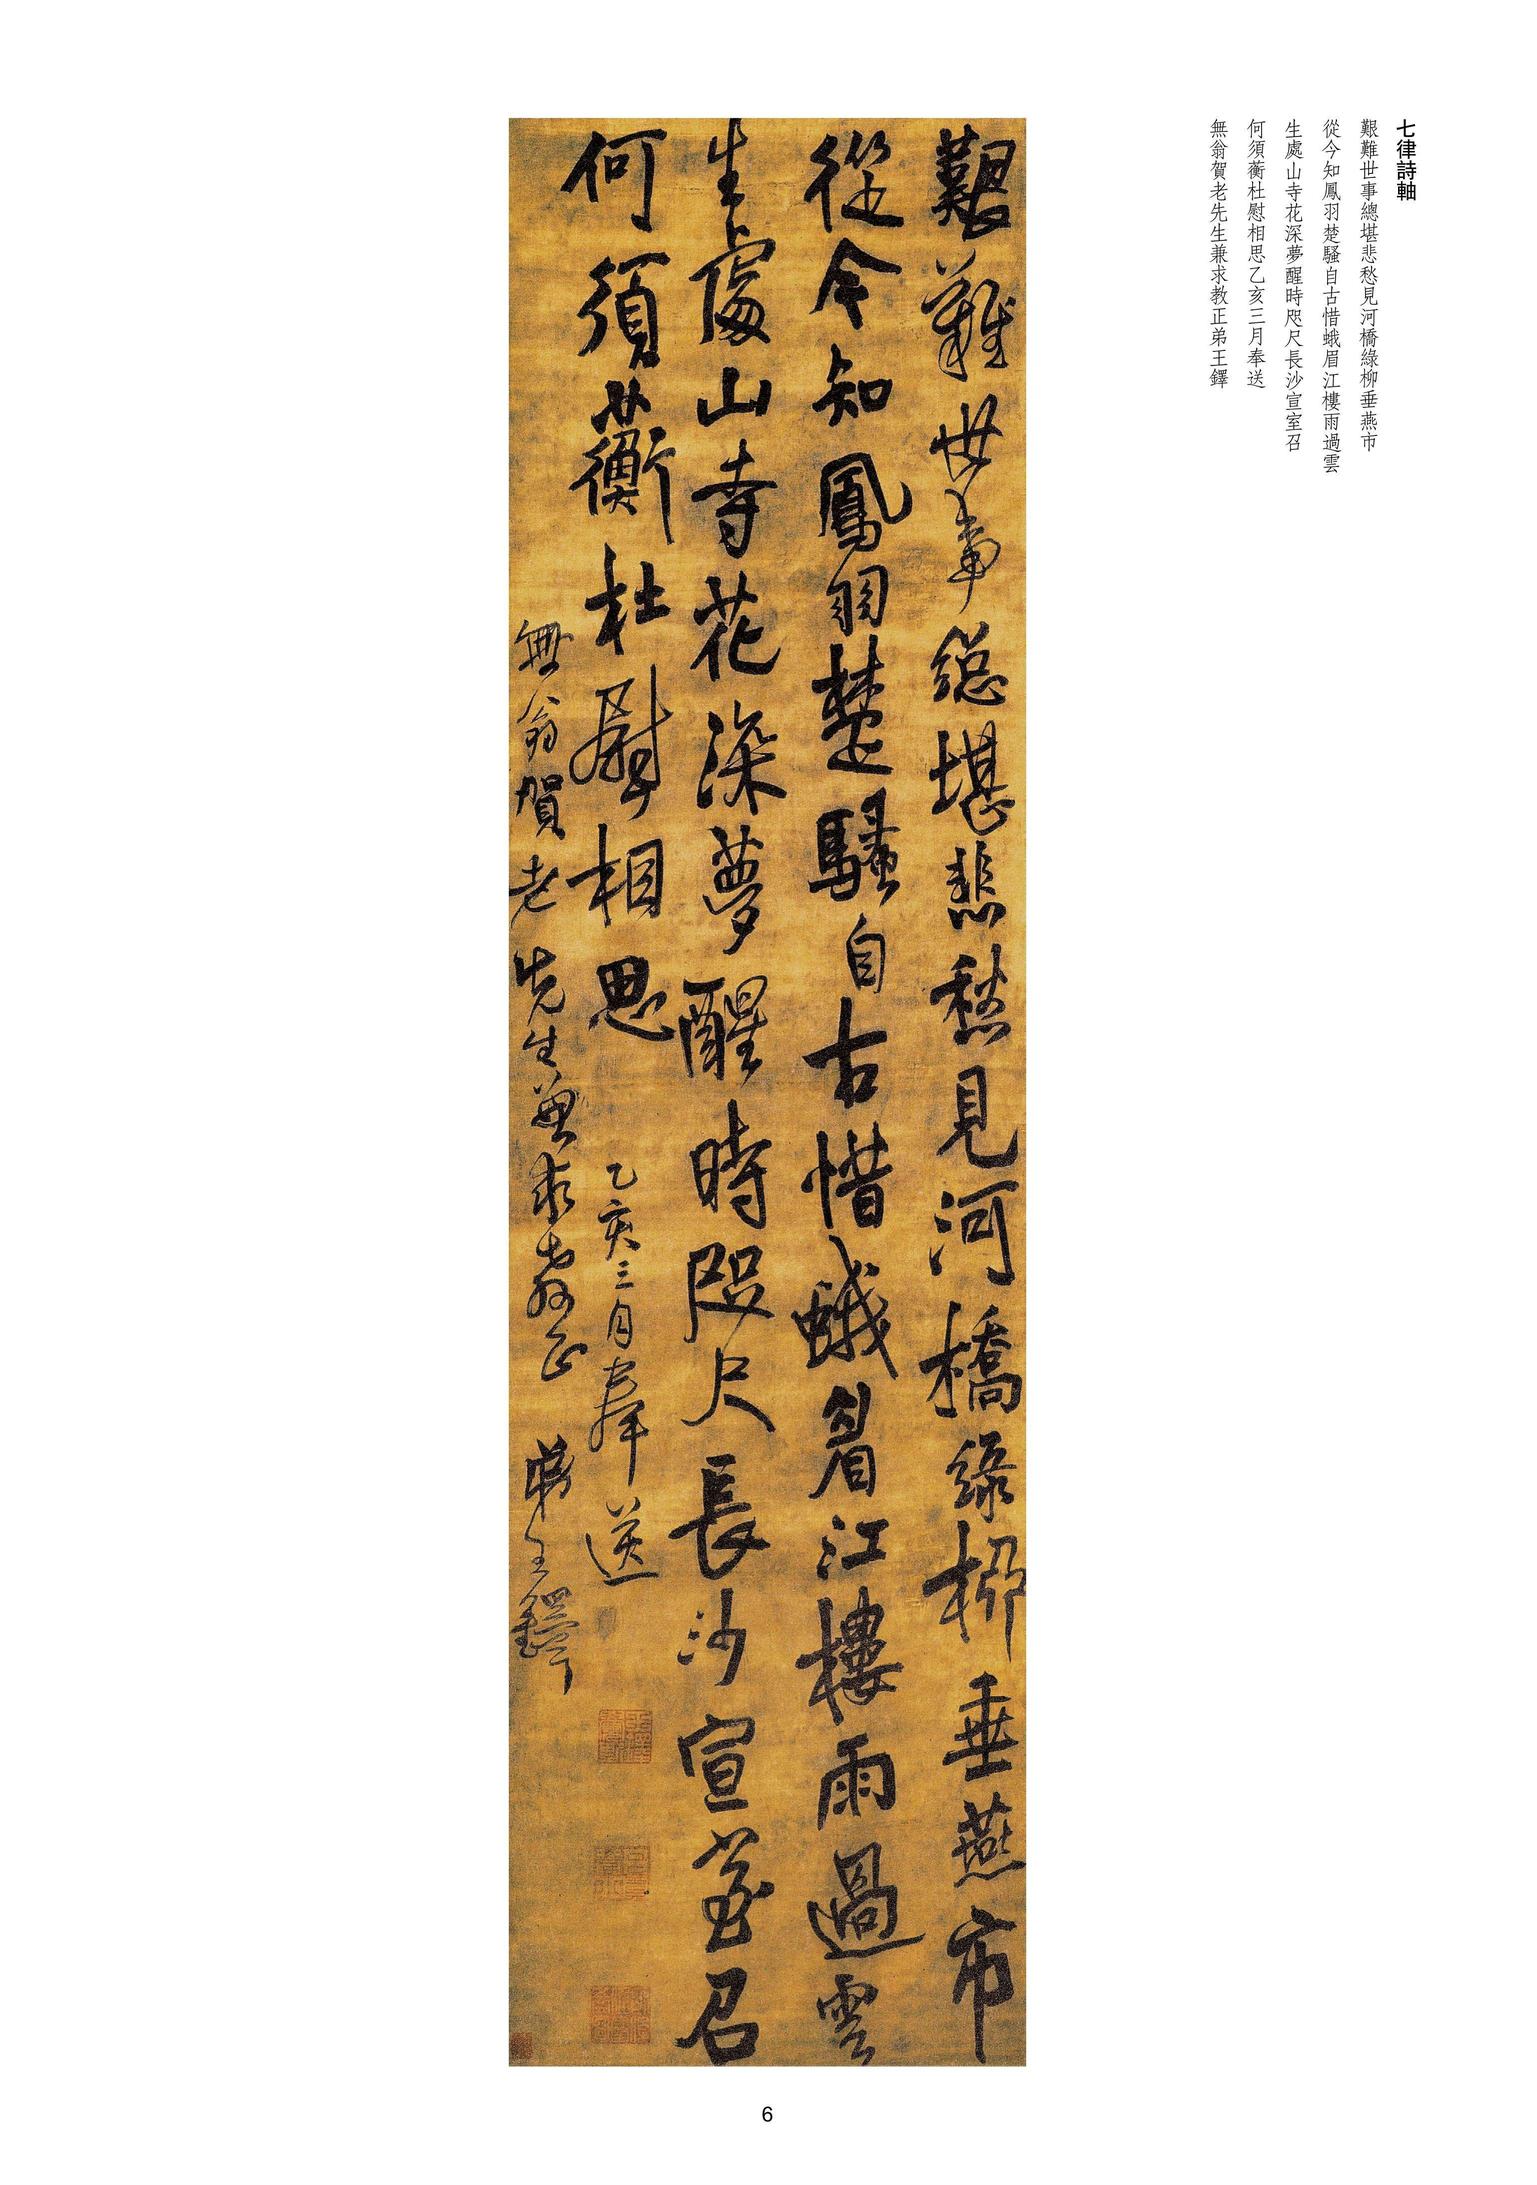 七律詩軸
艱難世事總堪悲愁見河橋綠柳垂燕市
從今知鳳羽楚騷自古惜蛾眉江樓雨過雲
生處山寺花深夢醒時咫尺長沙宣室召
何須蘅杜慰相思乙亥三月奉送
無翁賀老先生兼求教正弟王鐸
艱難世事總堪悲愁見河橋綠柳垂燕市
從今知鳳羽楚騷自古惜蛾眉江樓雨過雲
生處山寺花深夢醒時咫尺長沙宣室召
何須蘅杜慰相思
乙亥三月奉送
無翁賀老先生兼求教正弟王鐸
6